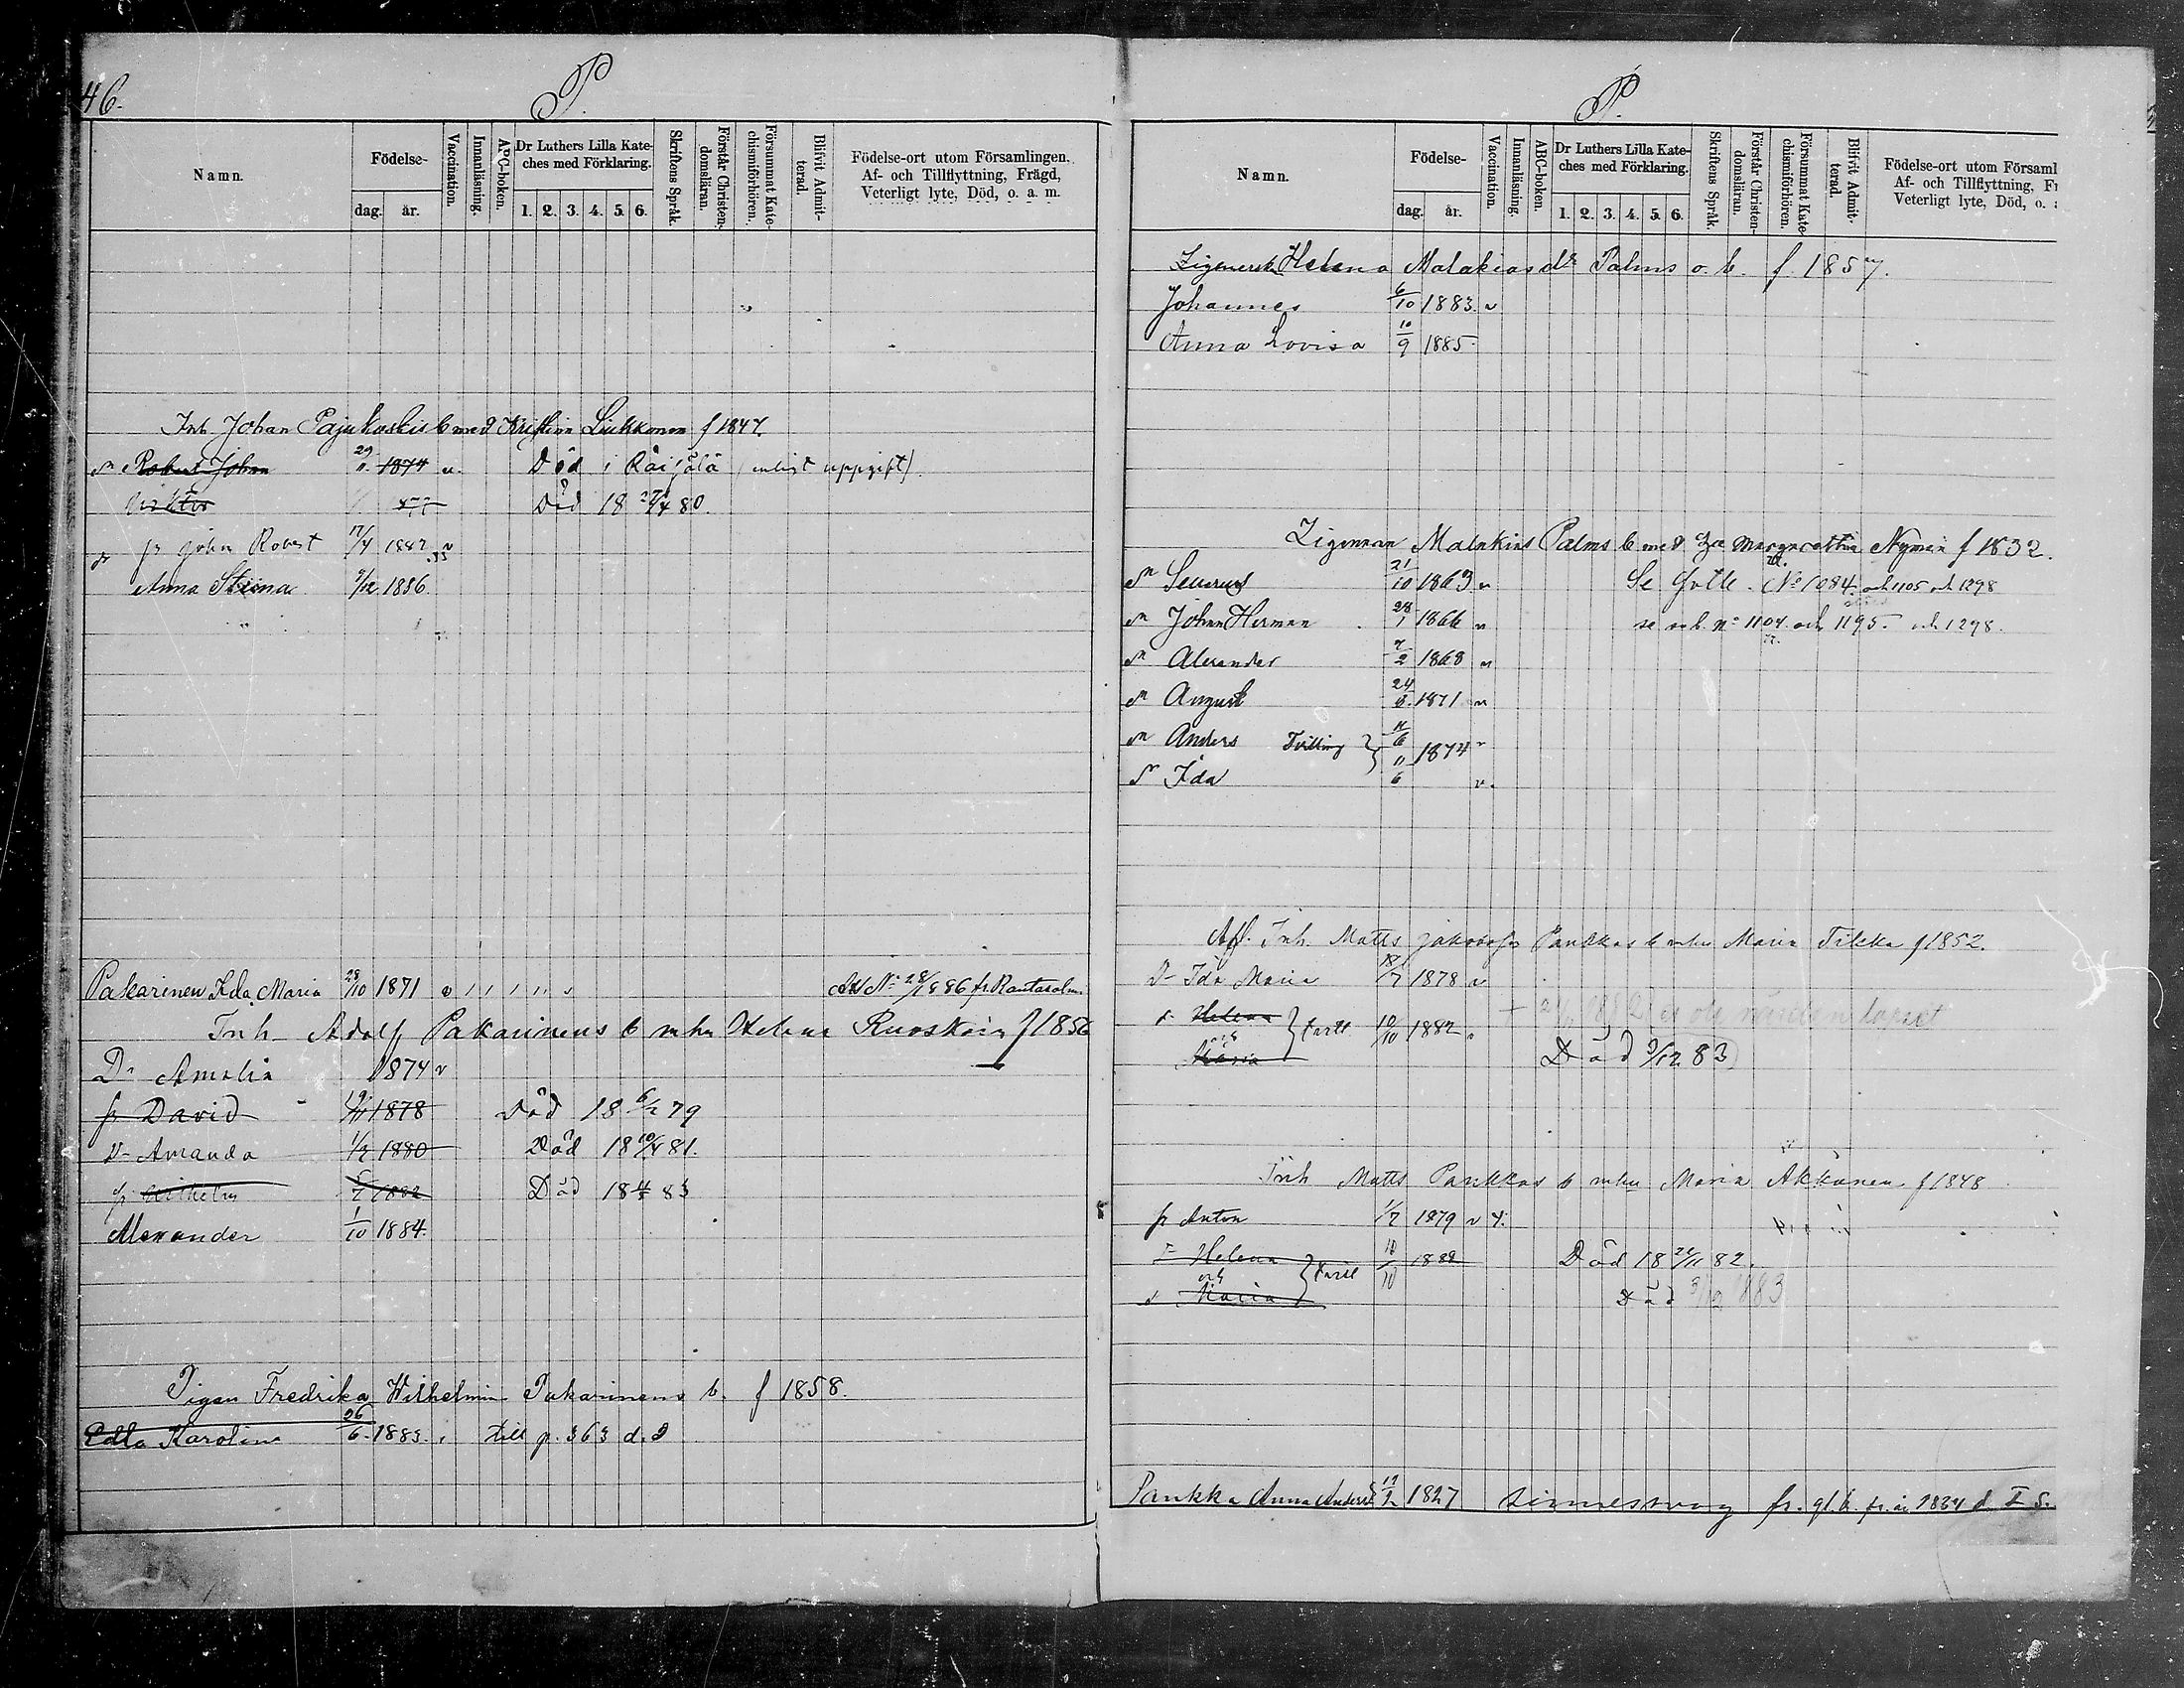 46.
P.
Namn.
Födelse-
dag.
år.
Vaccination.
Innanläsning.
ABC-boken.
Dr Luthers Lilla Kate-
ches med Förklaring.
1. 2. 3. 4. 5. 6.
Skriftens Språk.
Förstår Christen-
domsläran.
Försummat Kate-
chismiförhören.
Blifvit Admit-
terad.
Födelse-ort utom Församlingen.
Af- och Tillflyttning, Frägd,
Veterligt lyte, Död, o. a. m.
Inh. Johan Pajukoskis b med Kristina Liukkonen f 1847.
Robert Johan 1874 v. Död i Räisälä (enligt uppgift)
Viktor 77 Död 18 27/4 80.
John Robert 17/4 1882 v
Anna Stiina 9/12 1886
Pakarinen Ida Maria 28/10 1871 fr. Rantasalm
Inh. Adolf Pakarinens b m hu Helena Ruoskain f 1856
Dr Amalia 1874 v
p David 19/11 1878 Död 18 6/2 79
Dr Amanda 1/2 1880 Död 18 10/4 81.
p Wilhelm 5/7 1882 Död 18 4/5 83
Alexander 1/10 1884.
Pigan Fredrika Wilhelmin Pakarinens b. f 1858.
Edla Karolina 26/6 1883. till p. 363 d. 2
P.
Namn.
Födelse-
dag.
år.
Vaccination.
Innanläsning.
ABC-boken.
Dr Luthers Lilla Kate-
ches med Förklaring.
1. 2. 3. 4. 5. 6.
Skriftens Språk.
Förstår Christen-
domsläran.
Försummat Kate-
chismiförhören.
Blifvit Admit-
terad.
Födelse-ort utom Församl
Af- och Tillflyttning, Fr
Veterligt lyte, Död, o. a
Zigenersk Helena Malakias dr Palms o. b. f. 1857.
Johannes 6/10 1883. v
Anna Lovisa 10/9 1885.
Zigenaren Malakias Palms b med Margaretha Nyman f 1832.
sn Severus 21/10 1863 v Se No 1084. och 1105 och 1298
sn Johan Herman 28/1 1866 v se No 1104 och 1195. och 1298.
sn Alexander 7/2 1868 v
sn August 24/8 1871 v
sn Anders Tvilling 11/6 1874 v
Dr Ida 11/6 v.
Afl. Inh. Matts Jakobsson Pankkas b m hu Maria Tikka f 1852.
Dr Ida Maria 18/7 1878 v
Helena och Maria tvill 10/10 1882
Död 3/12 83
Inh Matts Pankkas b m hu Maria Akkanen f 1848
p Anton 1/7 1879 v
Helena 10/10 1882 Död 18 24/11 82.
och tvill
Maria Död 3/12 1883
Pankka Anna Andersd 19/2 1827 sinnessvag fr. gl. b. fr. år 1834 d. I S.